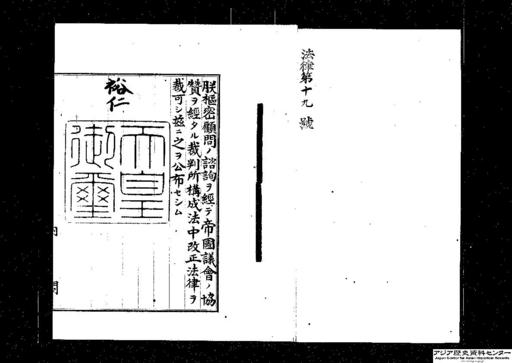 法律第十九號
朕樞密顧問ノ諮詢ヲ經テ帝國議會ノ協
賛ヲ經タル裁判所構成法中改正法律ヲ
裁可シ茲ニ之ヲ公布セシム
裕仁
天皇
御璽
アジア歴史資料センター
Japan Center for Asian Historical Records